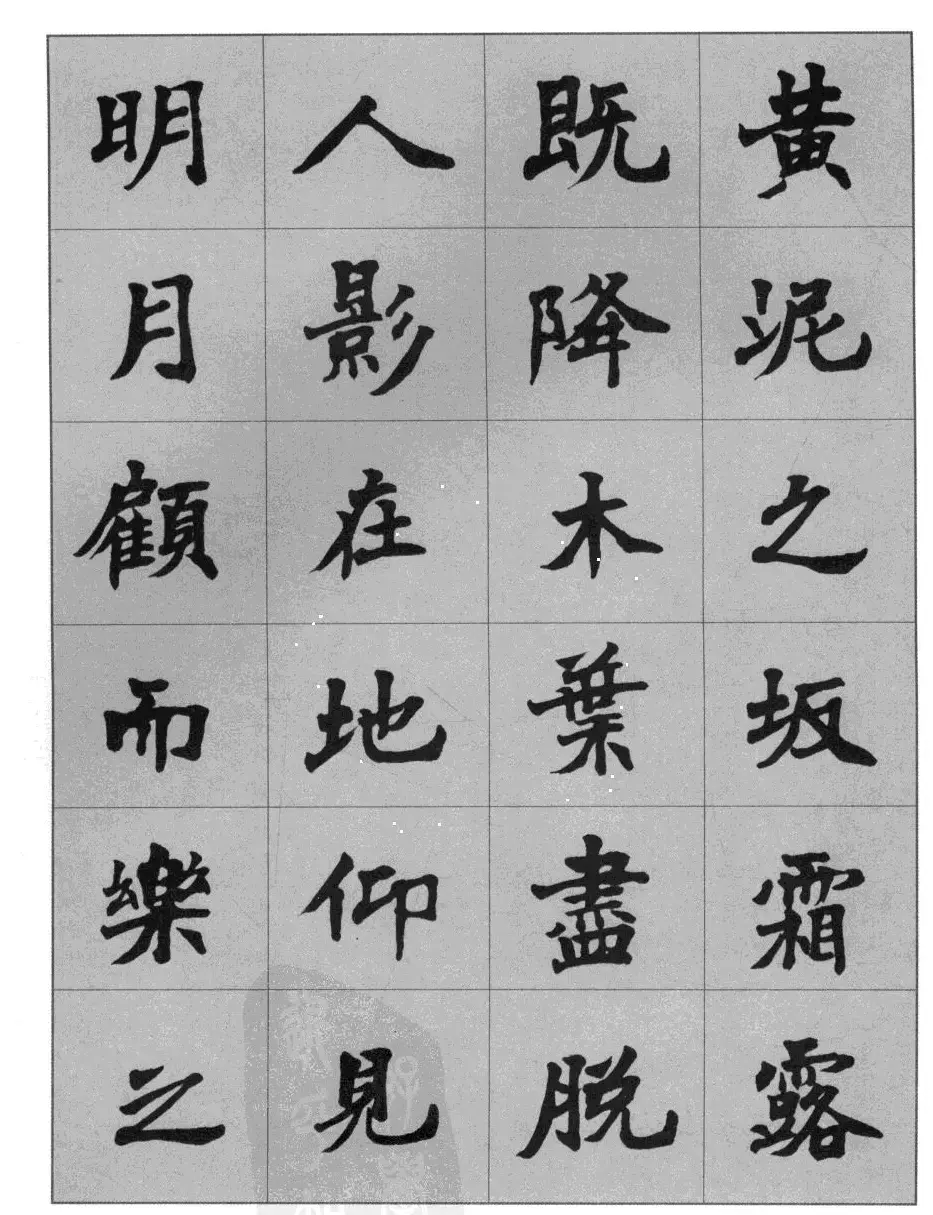 黄泥之坂霜露
既降木葉盡脱
人影在地仰見
明月顧而樂之